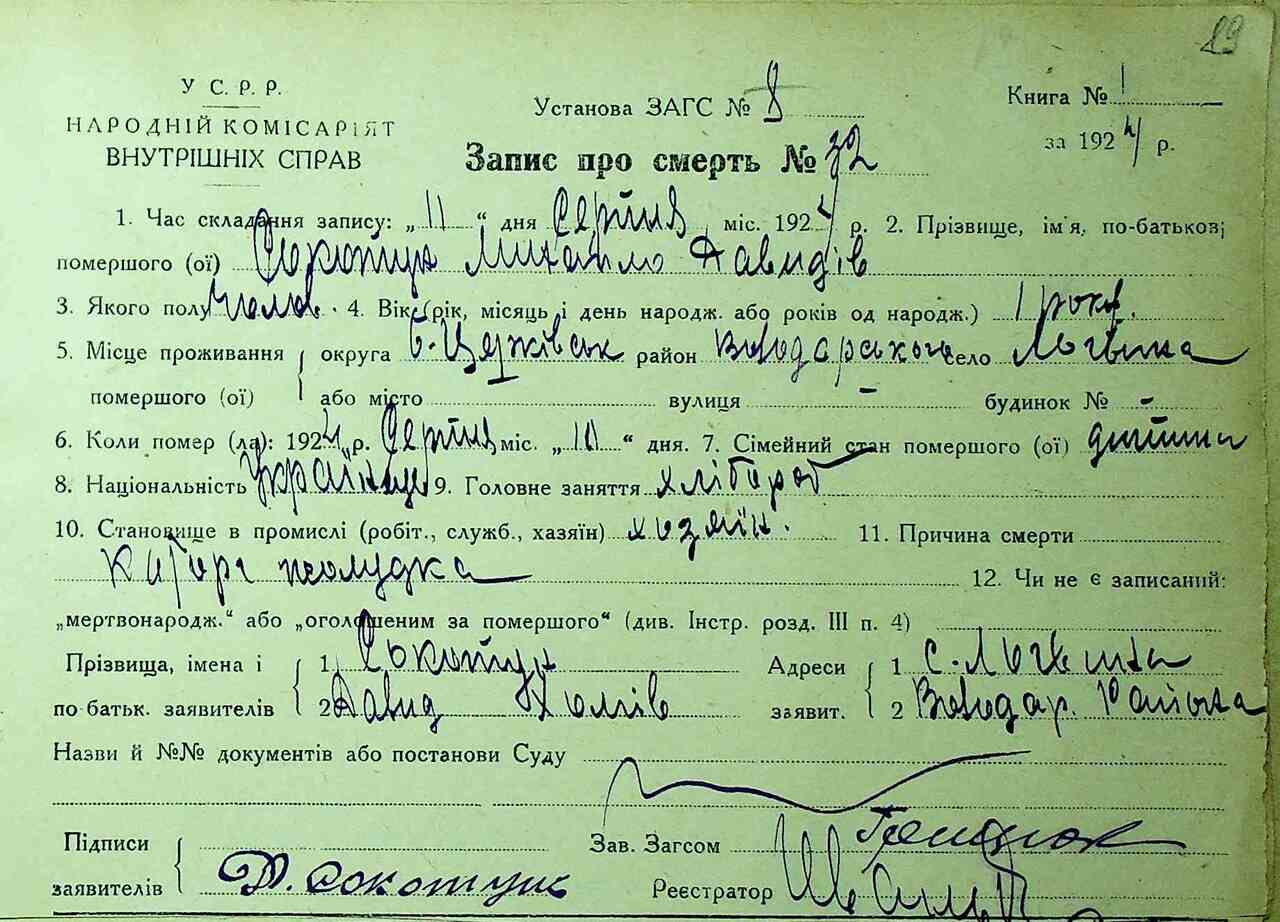 89
У С. Р. Р.
НАРОДНІЙ КОМІСАРІЯТ
ВНУТРІШНІХ СПРАВ
Установа ЗАГС № 8
Книга № 1
за 1924 р.
Запис про смерть № 32
1. Час складання запису: „11“ дня Серпня міс. 1924 р. 2. Прізвище, ім'я, по-батькові
померлого (ої) Сокотун Михайло Давидів
3. Якого полу Чолов. 4. Вік (рік, місяць і день народж. або років од народж.) 1 року.
5. Місце проживання округа Б-Церківськ район Володарського село Логвина
помершого (ої) або місто вулиця - будинок № -
6. Коли помер (ла): 1924 р. Серпня міс. „10“ дня. 7. Сімейний стан помершого (ої) дитина
8. Національність Українець 9. Головне заняття хлібороб
10. Становище в промислі (робіт., служб., хазяїн) хозяїн. 11. Причина смерти
Катар жолудка 12. Чи не є записаний:
„мертвонародж.“ або „оголошеним за помершого“ (див. Інстр. розд. III п. 4)
Прізвища, імена і 1 Сокотун Адреси 1 с. Логвина
по батьк. заявителів 2 Давид заявит. 2 Володар. Района
Назви й №№ документів або постанови Суду
Підписи
заявителів Д. Сокотун
Зав. Загсом
Реєстратор